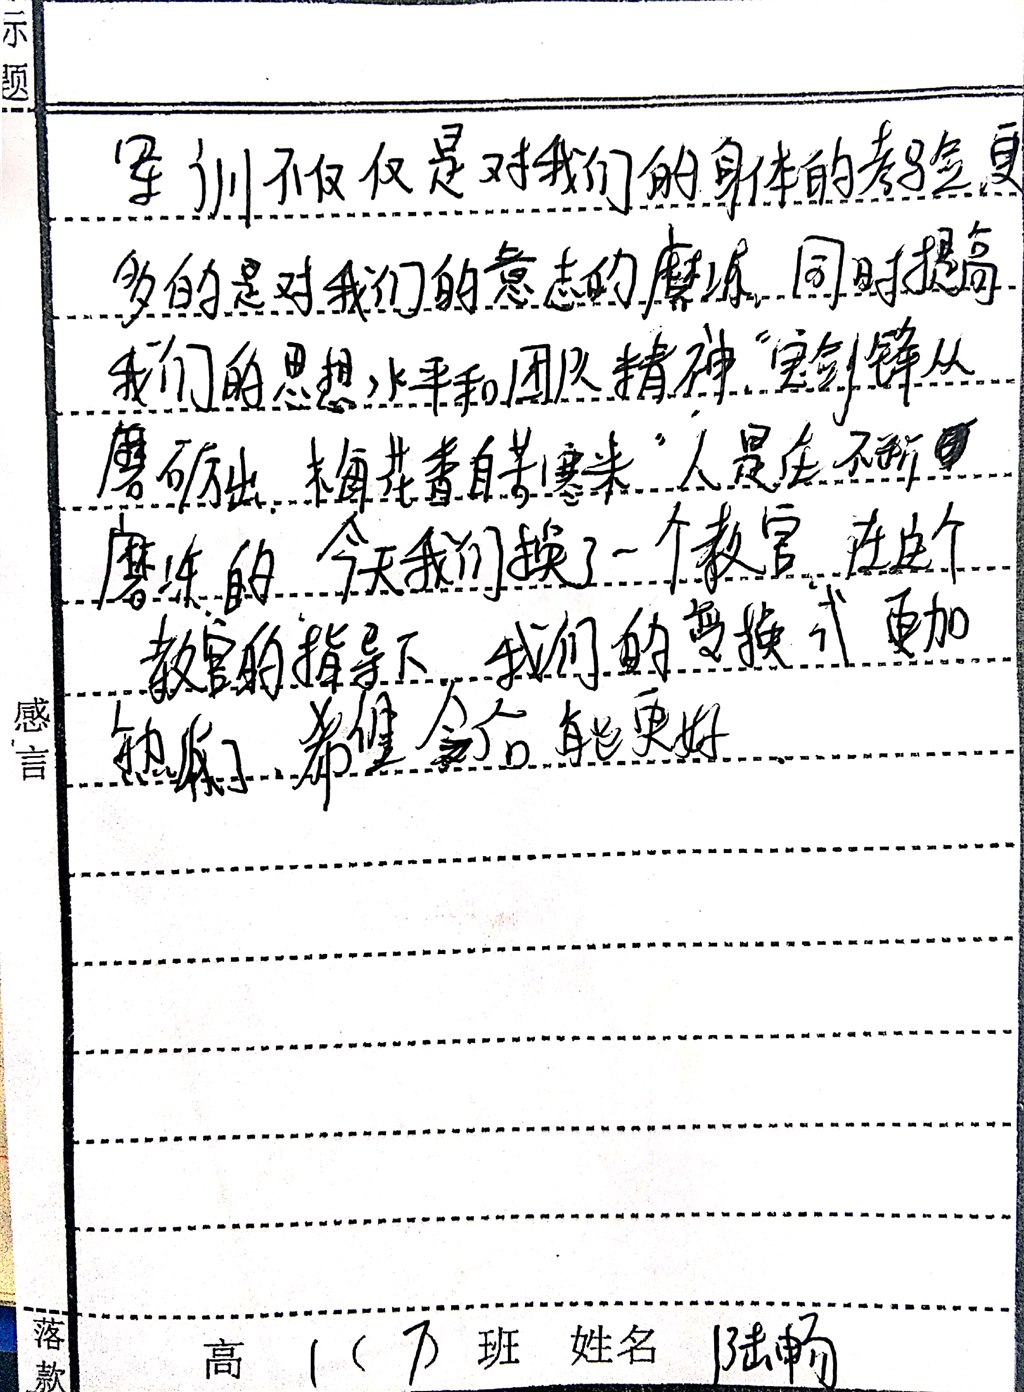 示题
军训不仅仅是对我们的身体的考验,更
多的是对我们的意志的磨练,同时提高
我们的思想水平和团队精神,“宝剑锋从
磨砺出,梅花香自苦寒来”人是在不断
磨练的,今天我们换了一个教官,在这个
教官的指导下,我们的变换式更加
熟练了,希望今后能更好
感言
落款
高1(7)班 姓名 陆畅